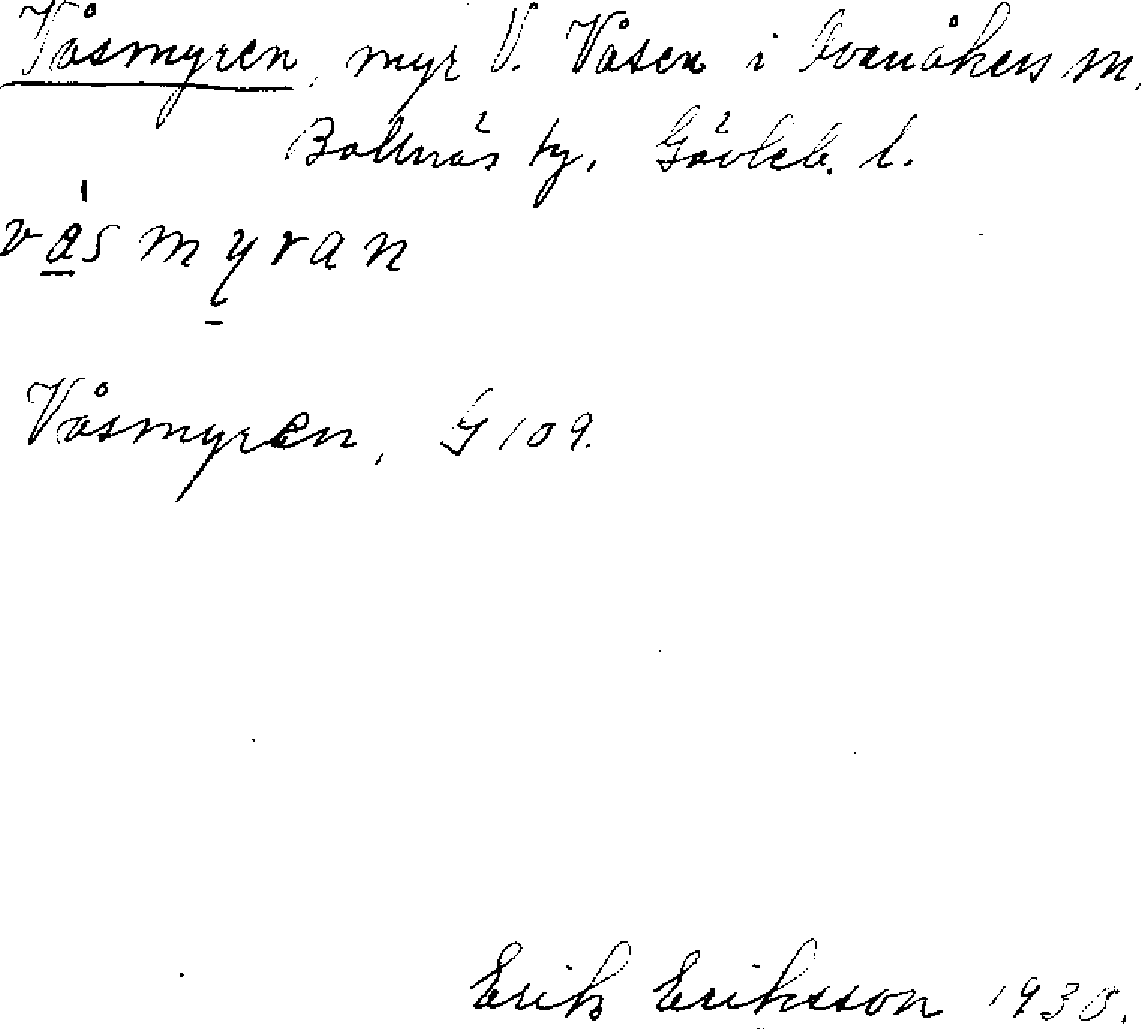 Våsmyren, myr V. Våsen i Ovanåkers m.
Bollnäs tg. Gävleb. l.
våsmyran
Våsmyren, G 109.
Erik Eriksson 1930.